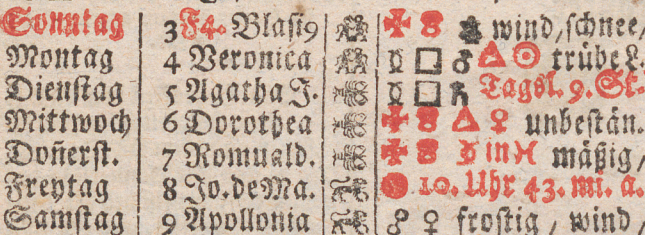 Sonntag 3 F4. Blasi9 wind, schnee,
Montag 4 Veronica ☿ □ ♂ △ ☉ trübe L.
Dienstag 5 Agatha J. ☿ □ ♄ Tagsl. 9. St.
Mittwoch 6 Dorothea △ ♀ unbestän.
Doñerst. 7 Romuald. ☿ in ♓ mäßig,
Freytag 8 Jo. de Ma. 10. Uhr 43. mi. a.
Samstag 9 Apollonia ☍ ♀ frostig, wind,